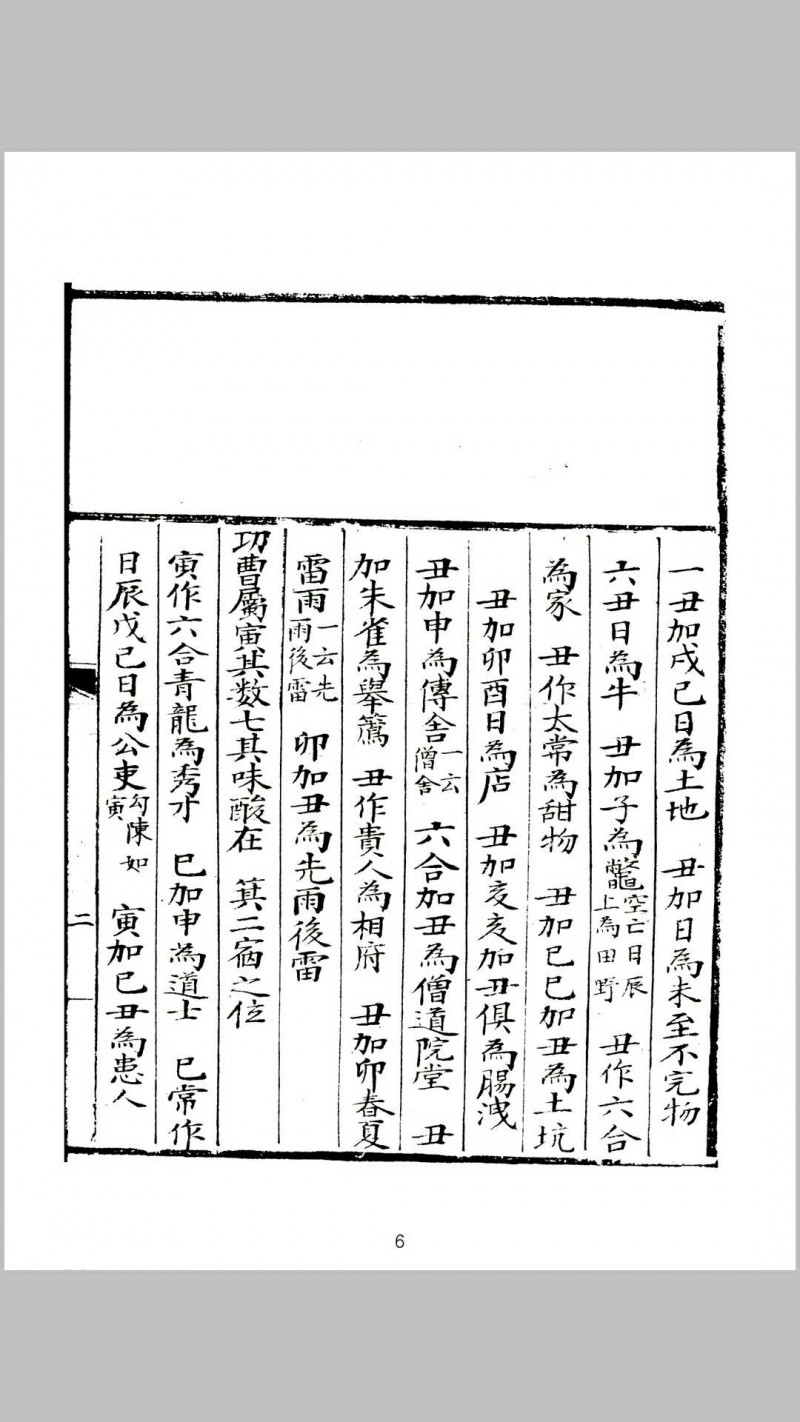 一丑加戌己日為土地　丑加日為未至不完物
六丑日為牛　丑加子為鼈空亡日辰上為田野　丑作六合
為家　丑作太常為甜物　丑加巳巳加丑為土坑
丑加卯酉日為店　丑加亥亥加丑俱為腸洩
丑加申為傳舍一云僧舍　六合加丑為僧道院堂　丑
加朱雀為舉薦　丑作貴人為相府　丑加卯春夏
雷雨一云先雨後雷　卯加丑為先雨後雷
功曹屬寅其数七其味酸在　箕二宿之位
寅作六合青龍為秀才　巳加申為道士　巳常作
日辰戊己日為公吏勾陳如寅　寅加巳丑為患人
二
6